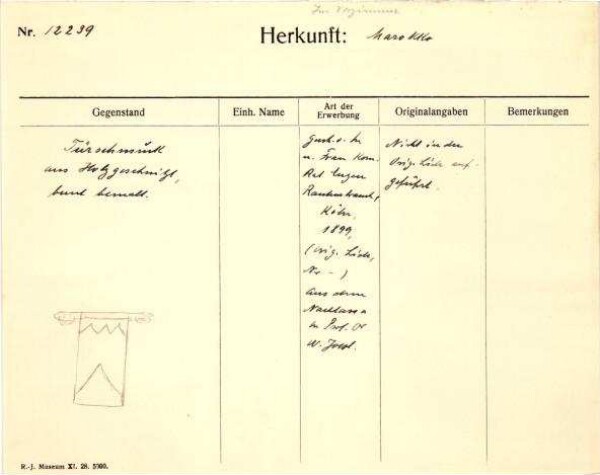 Im Vorzimmer
Nr. 12239 Herkunft: Marokko
Gegenstand
Einh. Name
Art der Erwerbung
Originalangaben
Bemerkungen
Türschmuck
aus Holz geschnitzt,
bunt bemalt.
Gesch. v. H.
u. Frau Kom.
Rat Eugen
Rautenstrauch,
Köln,
1899,
(Orig. Liste,
No - )
aus dem
Nachlass v.
H. Prof. Dr
W. Joest.
Nicht in der
Orig. Liste auf-
geführt.
R.-J. Museum XI. 28. 5000.